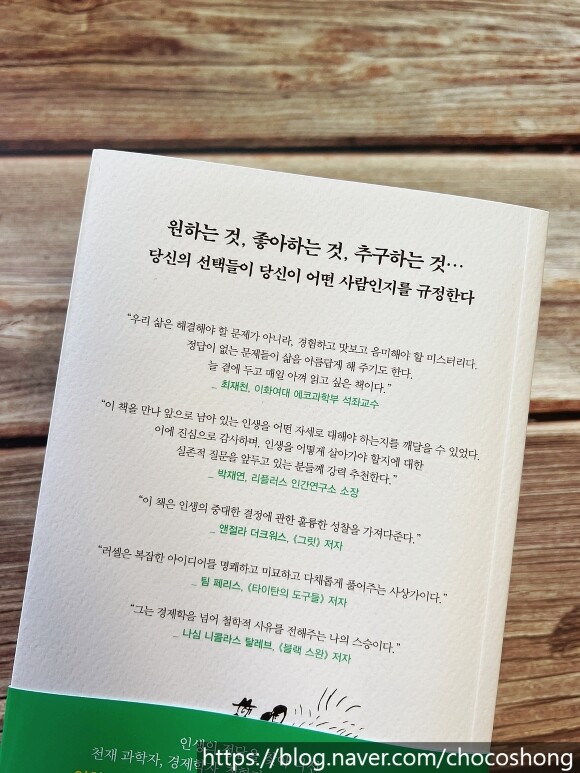 원하는 것, 좋아하는 것, 추구하는 것…
당신의 선택들이 당신이 어떤 사람인지를 규정한다
“우리 삶은 해결해야 할 문제가 아니라, 경험하고 맛보고 음미해야 할 미스터리다.
정답이 없는 문제들이 삶을 아름답게 해 주기도 한다.
늘 곁에 두고 매일 아껴 읽고 싶은 책이다.”
_ 최재천, 이화여대 에코과학부 석좌교수
“이 책을 만나 앞으로 남아 있는 인생을 어떤 자세로 대해야 하는지를 깨달을 수 있었다.
이에 진심으로 감사하며, 인생을 어떻게 살아가야 할지에 대한
실존적 질문을 앞두고 있는 분들께 강력 추천한다.”
_ 박재연, 리플러스 인간연구소 소장
“이 책은 인생의 중대한 결정에 관한 훌륭한 성찰을 가져다준다.”
_ 앤절라 더크워스, 《그릿》 저자
“러셀은 복잡한 아이디어를 명쾌하고 미묘하고 다채롭게 풀어주는 사상가이다.”
_ 팀 페리스, 《타이탄의 도구들》 저자
“그는 경제학을 넘어 철학적 사유를 전해주는 나의 스승이다.”
_ 나심 니콜라스 탈레브, 《블랙 스완》 저자
인생의
천재 과학자, 경제학자,
https://blog.naver.com/chocoshong